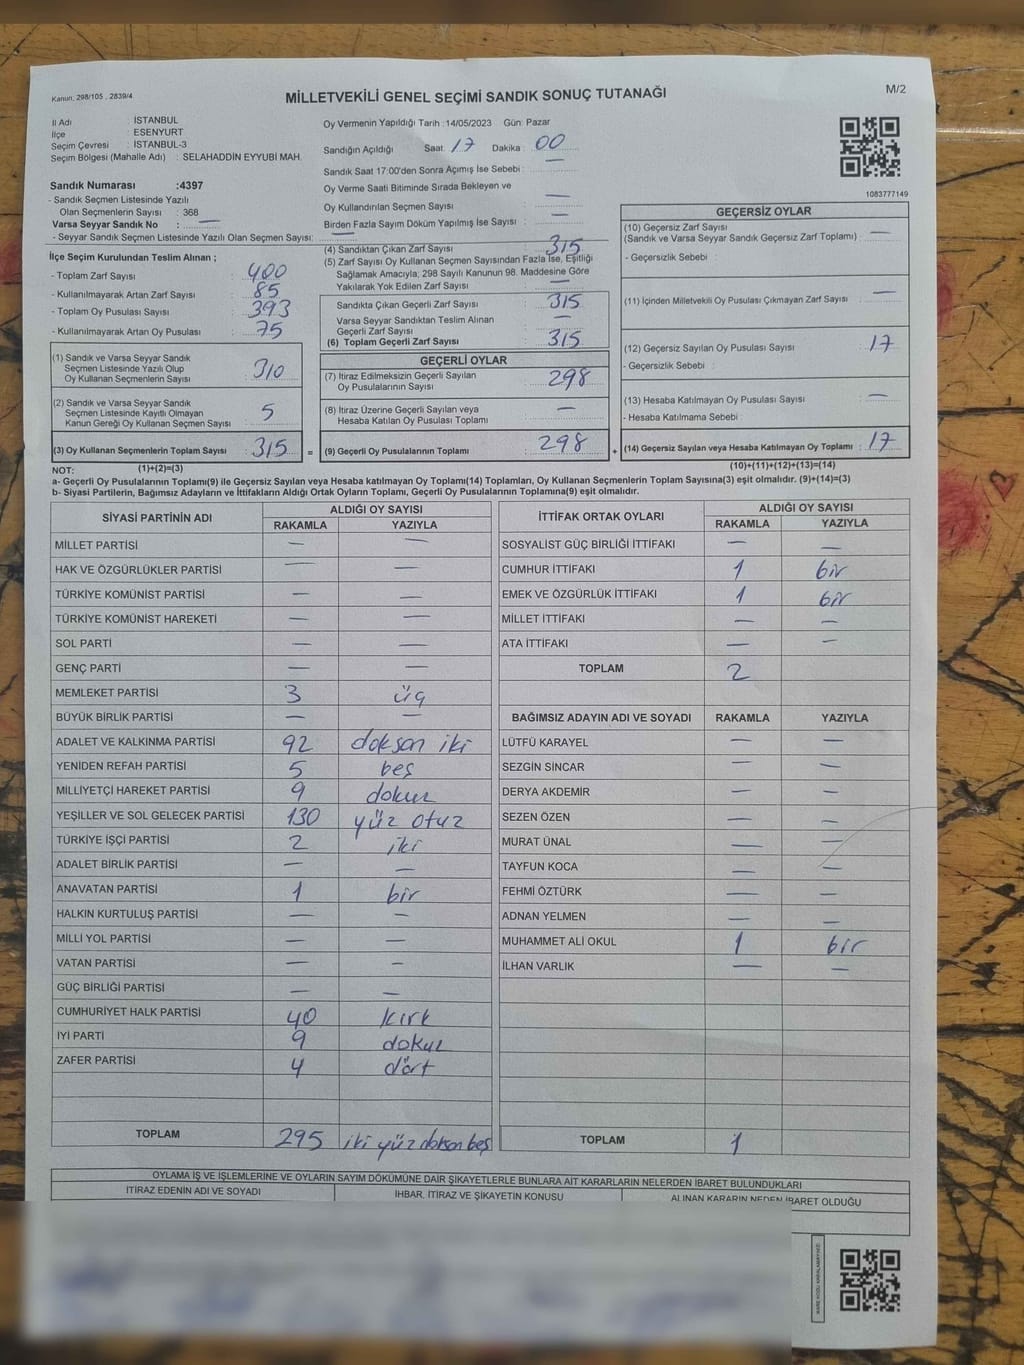 Kanun. 298/105 , 2839/4
MİLLETVEKİLİ GENEL SEÇİMİ SANDIK SONUÇ TUTANAĞI
M/2
İl Adı : İSTANBUL
İlçe : ESENYURT
Seçim Çevresi : İSTANBUL-3
Seçim Bölgesi (Mahalle Adı) : SELAHADDİN EYYUBİ MAH.
Sandık Numarası :4397
- Sandık Seçmen Listesinde Yazılı
Olan Seçmenlerin Sayısı : 368
Varsa Seyyar Sandık No : —
- Seyyar Sandık Seçmen Listesinde Yazılı Olan Seçmen Sayısı: —
İlçe Seçim Kurulundan Teslim Alınan ;
- Toplam Zarf Sayısı : 400
- Kullanılmayarak Artan Zarf Sayısı : 85
- Toplam Oy Pusulası Sayısı : 393
- Kullanılmayarak Artan Oy Pusulası : 75
(1) Sandık ve Varsa Seyyar Sandık
Seçmen Listesinde Yazılı Olup
Oy Kullanan Seçmenlerin Sayısı : 310
(2) Sandık ve Varsa Seyyar Sandık
Seçmen Listesinde Kayıtlı Olmayan
Kanun Gereği Oy Kullanan Seçmen Sayısı : 5
(3) Oy Kullanan Seçmenlerin Toplam Sayısı : 315 =
Oy Vermenin Yapıldığı Tarih : 14/05/2023 Gün: Pazar
Sandığın Açıldığı Saat: 17 Dakika : 00
Sandık Saat 17:00'den Sonra Açımış İse Sebebi : —
Oy Verme Saati Bitiminde Sırada Bekleyen ve
Oy Kullandırılan Seçmen Sayısı : —
Birden Fazla Sayım Döküm Yapılmış İse Sayısı : —
(4) Sandıktan Çıkan Zarf Sayısı : 315
(5) Zarf Sayısı Oy Kullanan Seçmen Sayısından Fazla İse, Eşitliği
Sağlamak Amacıyla; 298 Sayılı Kanunun 98. Maddesine Göre
Yakılarak Yok Edilen Zarf Sayısı : —
Sandıkta Çıkan Geçerli Zarf Sayısı : 315
Varsa Seyyar Sandıktan Teslim Alınan
Geçerli Zarf Sayısı : —
(6) Toplam Geçerli Zarf Sayısı : 315
GEÇERLİ OYLAR
(7) İtiraz Edilmeksizin Geçerli Sayılan
Oy Pusulalarının Sayısı : 298
(8) İtiraz Üzerine Geçerli Sayılan veya
Hesaba Katılan Oy Pusulası Toplamı : —
(9) Geçerli Oy Pusulalarının Toplamı : 298 +
1083777149
GEÇERSİZ OYLAR
(10) Geçersiz Zarf Sayısı
(Sandık ve Varsa Seyyar Sandık Geçersiz Zarf Toplamı) : —
- Geçersizlik Sebebi :
(11) İçinden Milletvekili Oy Pusulası Çıkmayan Zarf Sayısı : —
(12) Geçersiz Sayılan Oy Pusulası Sayısı : 17
- Geçersizlik Sebebi :
(13) Hesaba Katılmayan Oy Pusulası Sayısı : —
- Hesaba Katılmama Sebebi :
(14) Geçersiz Sayılan veya Hesaba Katılmayan Oy Toplamı : 17
NOT: (1)+(2)=(3) (10)+(11)+(12)+(13)=(14)
a- Geçerli Oy Pusulalarının Toplamı(9) ile Geçersiz Sayılan veya Hesaba katılmayan Oy Toplamı(14) Toplamları, Oy Kullanan Seçmenlerin Toplam Sayısına(3) eşit olmalıdır. (9)+(14)=(3)
b- Siyasi Partilerin, Bağımsız Adayların ve İttifakların Aldığı Ortak Oyların Toplamı, Geçerli Oy Pusulalarının Toplamına(9) eşit olmalıdır.
SİYASİ PARTİNİN ADI ALDIĞI OY SAYISI
RAKAMLA YAZIYLA
MİLLET PARTİSİ — —
HAK VE ÖZGÜRLÜKLER PARTİSİ — —
TÜRKİYE KOMÜNİST PARTİSİ — —
TÜRKİYE KOMÜNİST HAREKETİ — —
SOL PARTİ — —
GENÇ PARTİ — —
MEMLEKET PARTİSİ 3 üç
BÜYÜK BİRLİK PARTİSİ — —
ADALET VE KALKINMA PARTİSİ 92 doksan iki
YENİDEN REFAH PARTİSİ 5 beş
MİLLİYETÇİ HAREKET PARTİSİ 9 dokuz
YEŞİLLER VE SOL GELECEK PARTİSİ 130 yüz otuz
TÜRKİYE İŞÇİ PARTİSİ 2 iki
ADALET BİRLİK PARTİSİ — —
ANAVATAN PARTİSİ 1 bir
HALKIN KURTULUŞ PARTİSİ — —
MİLLİ YOL PARTİSİ — —
VATAN PARTİSİ — —
GÜÇ BİRLİĞİ PARTİSİ — —
CUMHURİYET HALK PARTİSİ 40 kırk
İYİ PARTİ 9 dokuz
ZAFER PARTİSİ 4 dört
TOPLAM 295 iki yüz doksan beş
İTTİFAK ORTAK OYLARI ALDIĞI OY SAYISI
RAKAMLA YAZIYLA
SOSYALİST GÜÇ BİRLİĞİ İTTİFAKI — —
CUMHUR İTTİFAKI 1 bir
EMEK VE ÖZGÜRLÜK İTTİFAKI 1 bir
MİLLET İTTİFAKI — —
ATA İTTİFAKI — —
TOPLAM 2
BAĞIMSIZ ADAYIN ADI VE SOYADI RAKAMLA YAZIYLA
LÜTFÜ KARAYEL — —
SEZGİN SİNCAR — —
DERYA AKDEMİR — —
SEZEN ÖZEN — —
MURAT ÜNAL — —
TAYFUN KOCA — —
FEHMİ ÖZTÜRK — —
ADNAN YELMEN — —
MUHAMMET ALİ OKUL 1 bir
İLHAN VARLIK — —
TOPLAM 1
OYLAMA İŞ VE İŞLEMLERİNE VE OYLARIN SAYIM DÖKÜMÜNE DAİR ŞİKAYETLERLE BUNLARA AİT KARARLARIN NELERDEN İBARET BULUNDUKLARI
İTİRAZ EDENİN ADI VE SOYADI İHBAR, İTİRAZ VE ŞİKAYETİN KONUSU ALINAN KARARIN NEDEN İBARET OLDUĞU